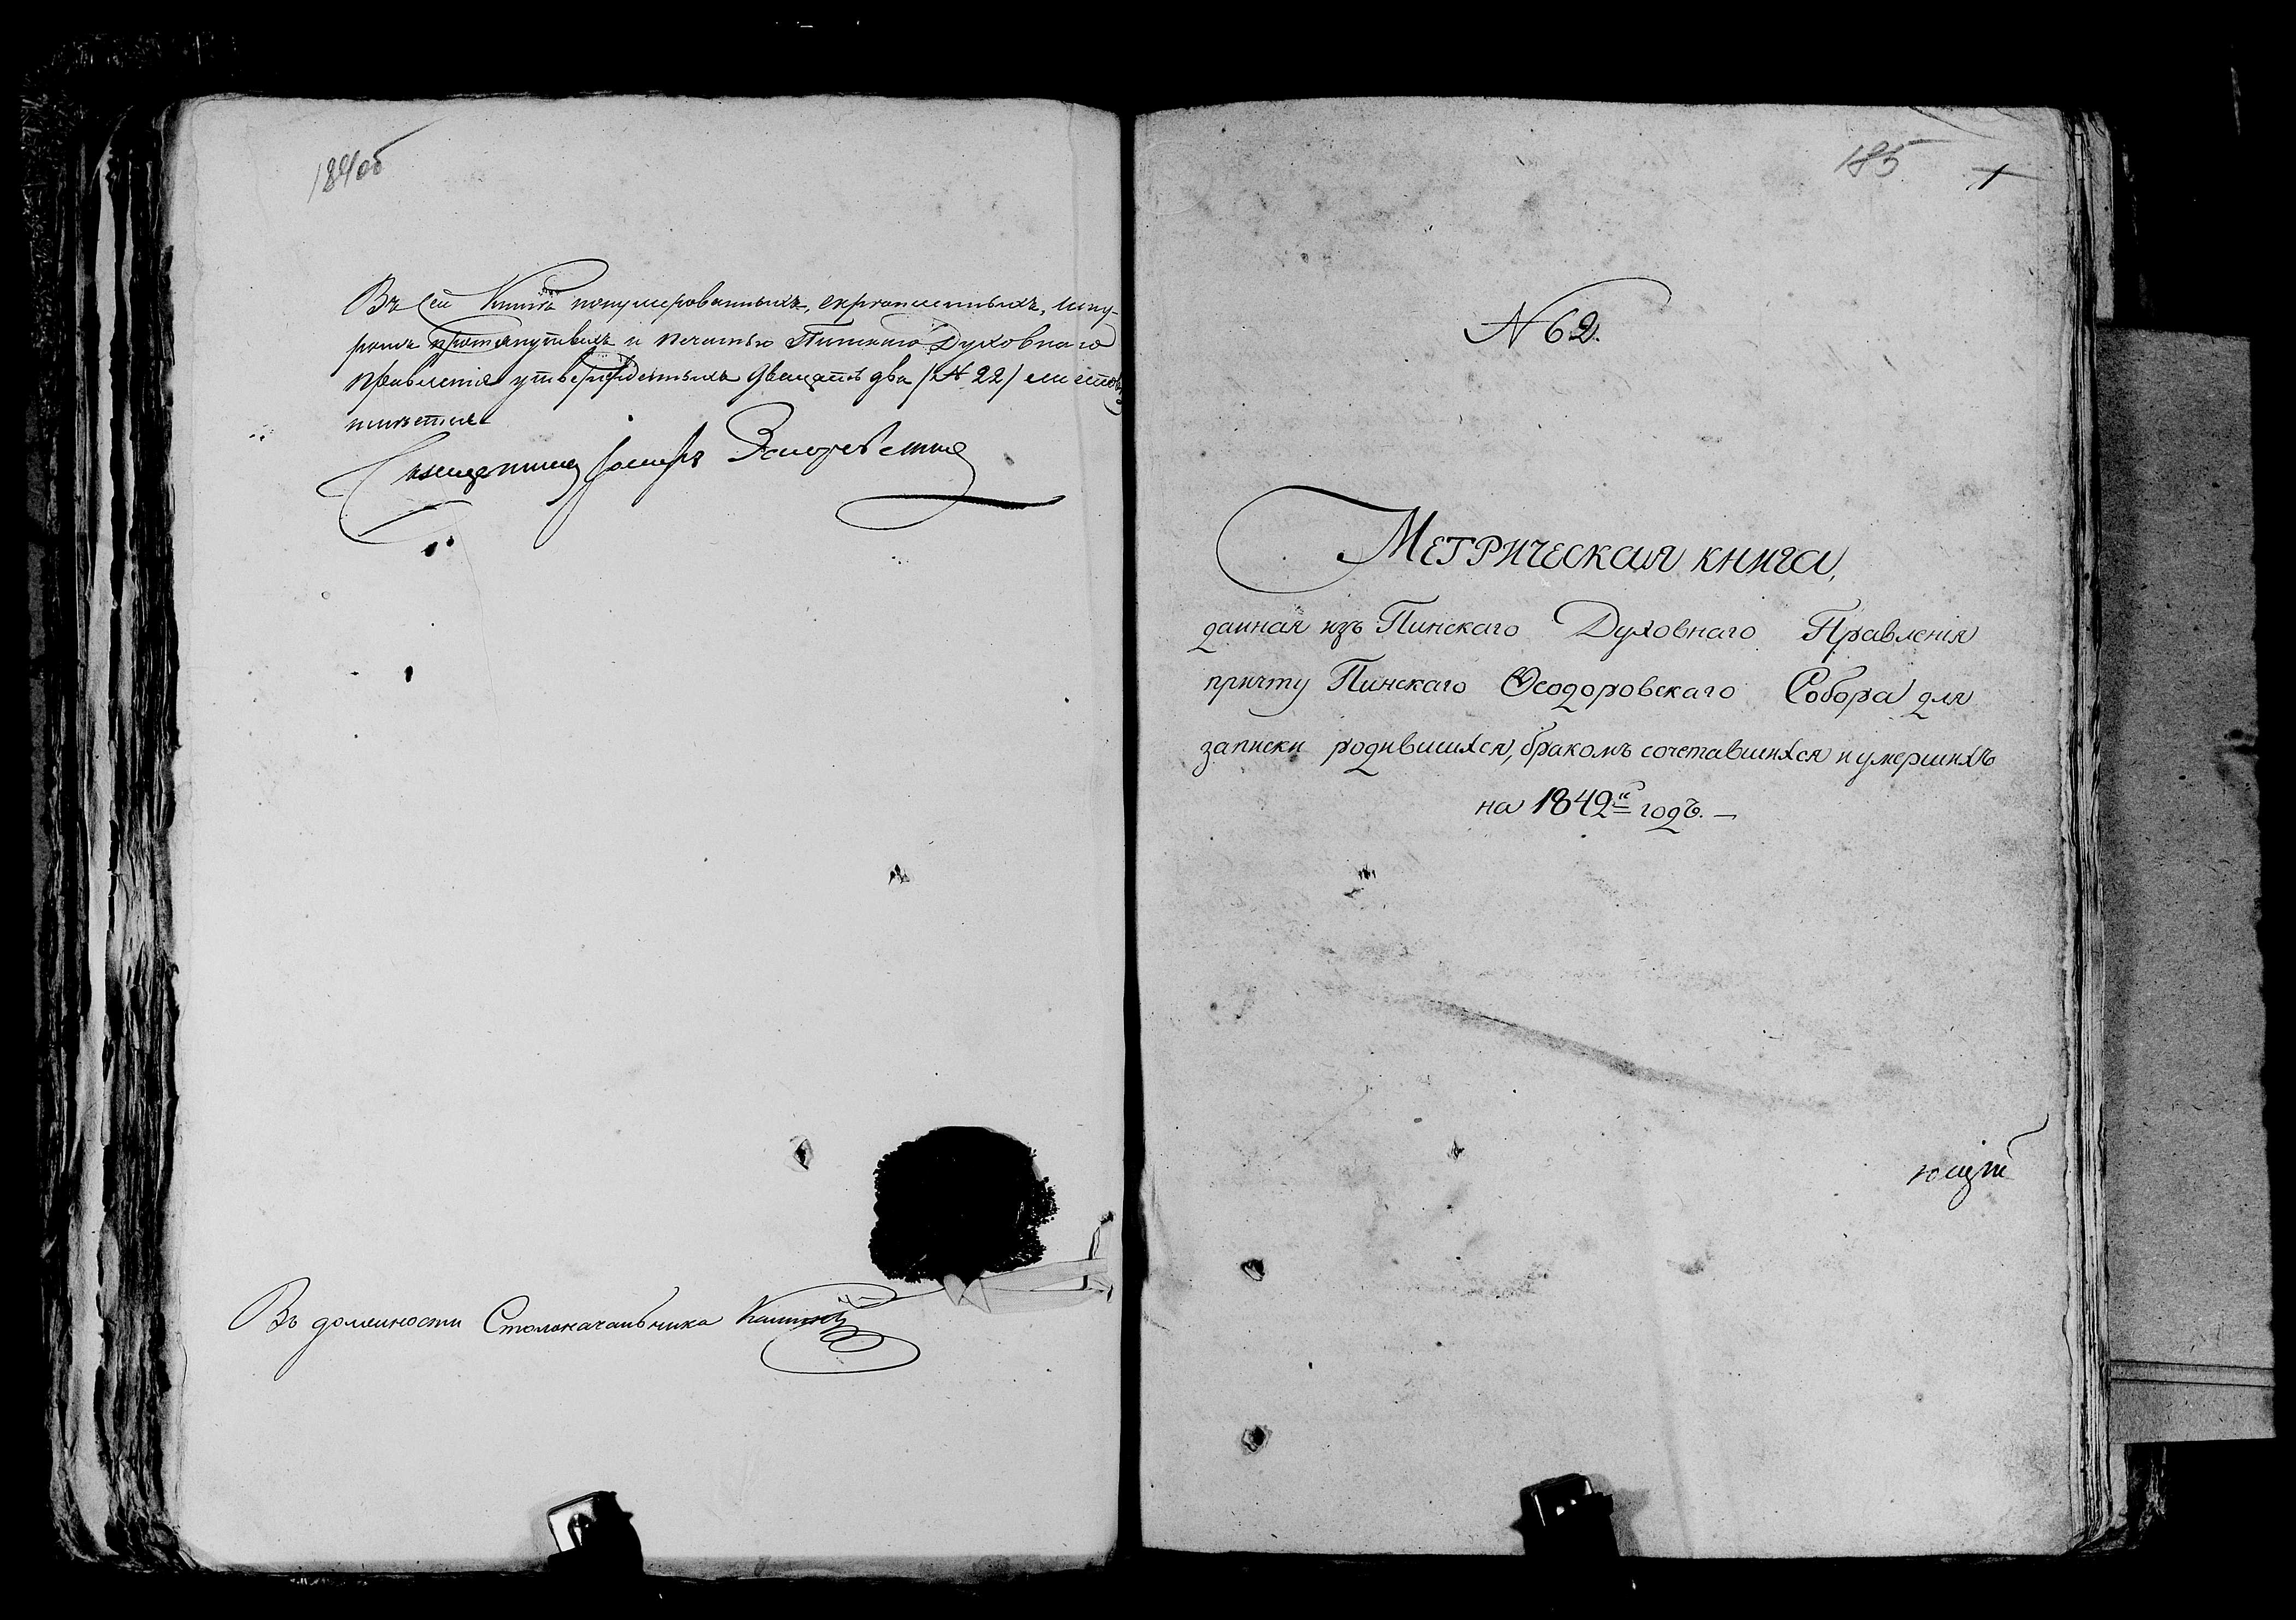 184об
Въ сей Книгѣ понумерованныхъ, скрѣпленныхъ, шну-
ромъ протянутыхъ и печатью Пинского Духовнаго
Правленія утвержденныхъ двацать два (№ 22) листовъ
имѣется
Священникъ Іосифъ
Въ должности Столоначальника
185
1
N 62.
Метрическая книга,
данная изъ Пинскаго Духовнаго Правленія
причту Пинскаго Ѳеодоровскаго Собора для
записки родившихся, бракомъ сочетавшихся и умершихъ
на 1842й годъ. —
ющій